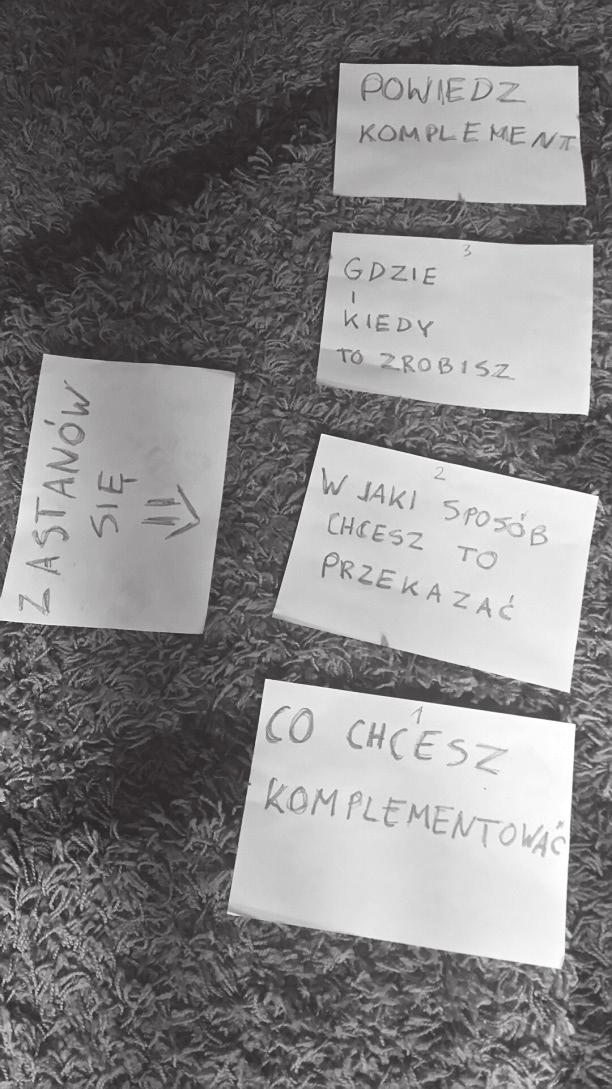 POWIEDZ
KOMPLEMENT
3
GDZIE
I
KIEDY
TO ZROBISZ
ZASTANÓW
SIĘ
2
W JAKI SPOSÓB
CHCESZ TO
PRZEKAZAĆ
1
CO CHCESZ
KOMPLEMENTOWAĆ